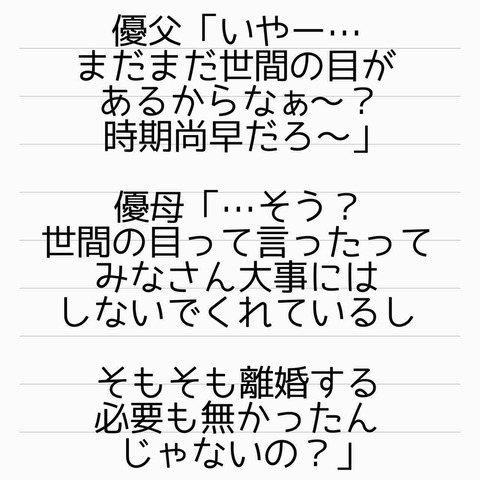 優父「いやー…
まだまだ世間の目が
あるからなぁ〜？
時期尚早だろ〜」
優母「…そう？
世間の目って言ったって
みなさん大事には
しないでくれているし
そもそも離婚する
必要も無かったん
じゃないの？」